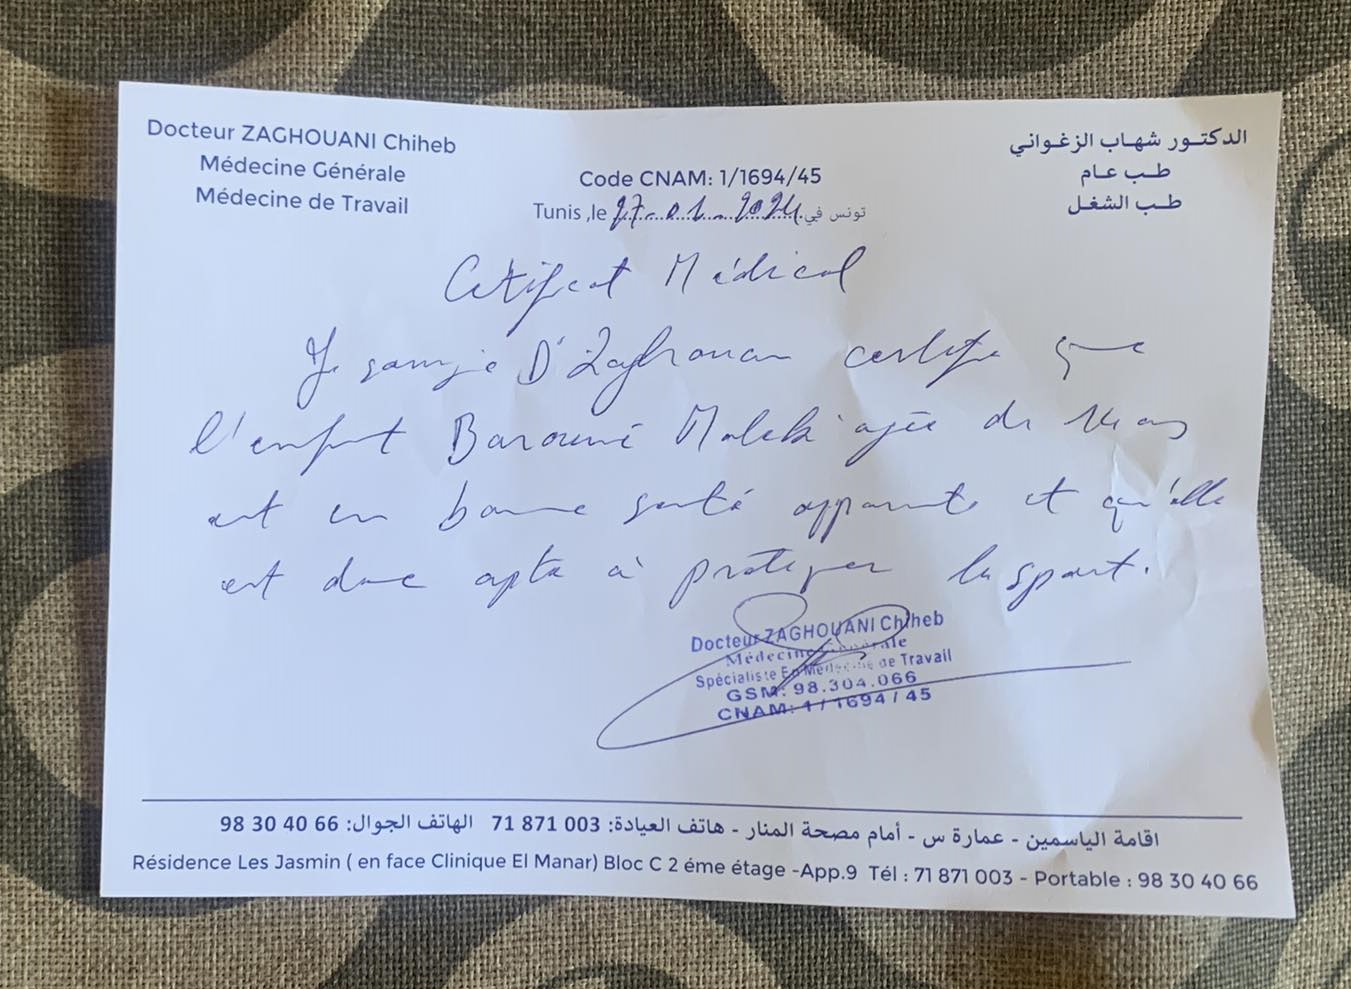 Docteur ZAGHOUANI Chiheb
Médecine Générale
Médecine de Travail
الدكتور شهاب الزغواني
طب عام
طب الشغل
Code CNAM: 1/1694/45
Tunis ,le 27-01-2024 تونس في
Certificat Médical
Je soussigné Dr Zaghouani certifie que
l'enfant Barouni Malek agée de 14 ans
est en bonne santé apparente et qu'elle
est donc apte à pratiquer le sport.
Docteur ZAGHOUANI Chiheb
Médecine Générale
Spécialiste En Médecine de Travail
GSM: 98.304.066
CNAM: 1/1694/45
اقامة الياسمين - عمارة س - أمام مصحة المنار - هاتف العيادة: 71 871 003 الهاتف الجوال: 98 30 40 66
Résidence Les Jasmin ( en face Clinique El Manar) Bloc C 2 éme étage -App.9 Tél : 71 871 003 - Portable : 98 30 40 66